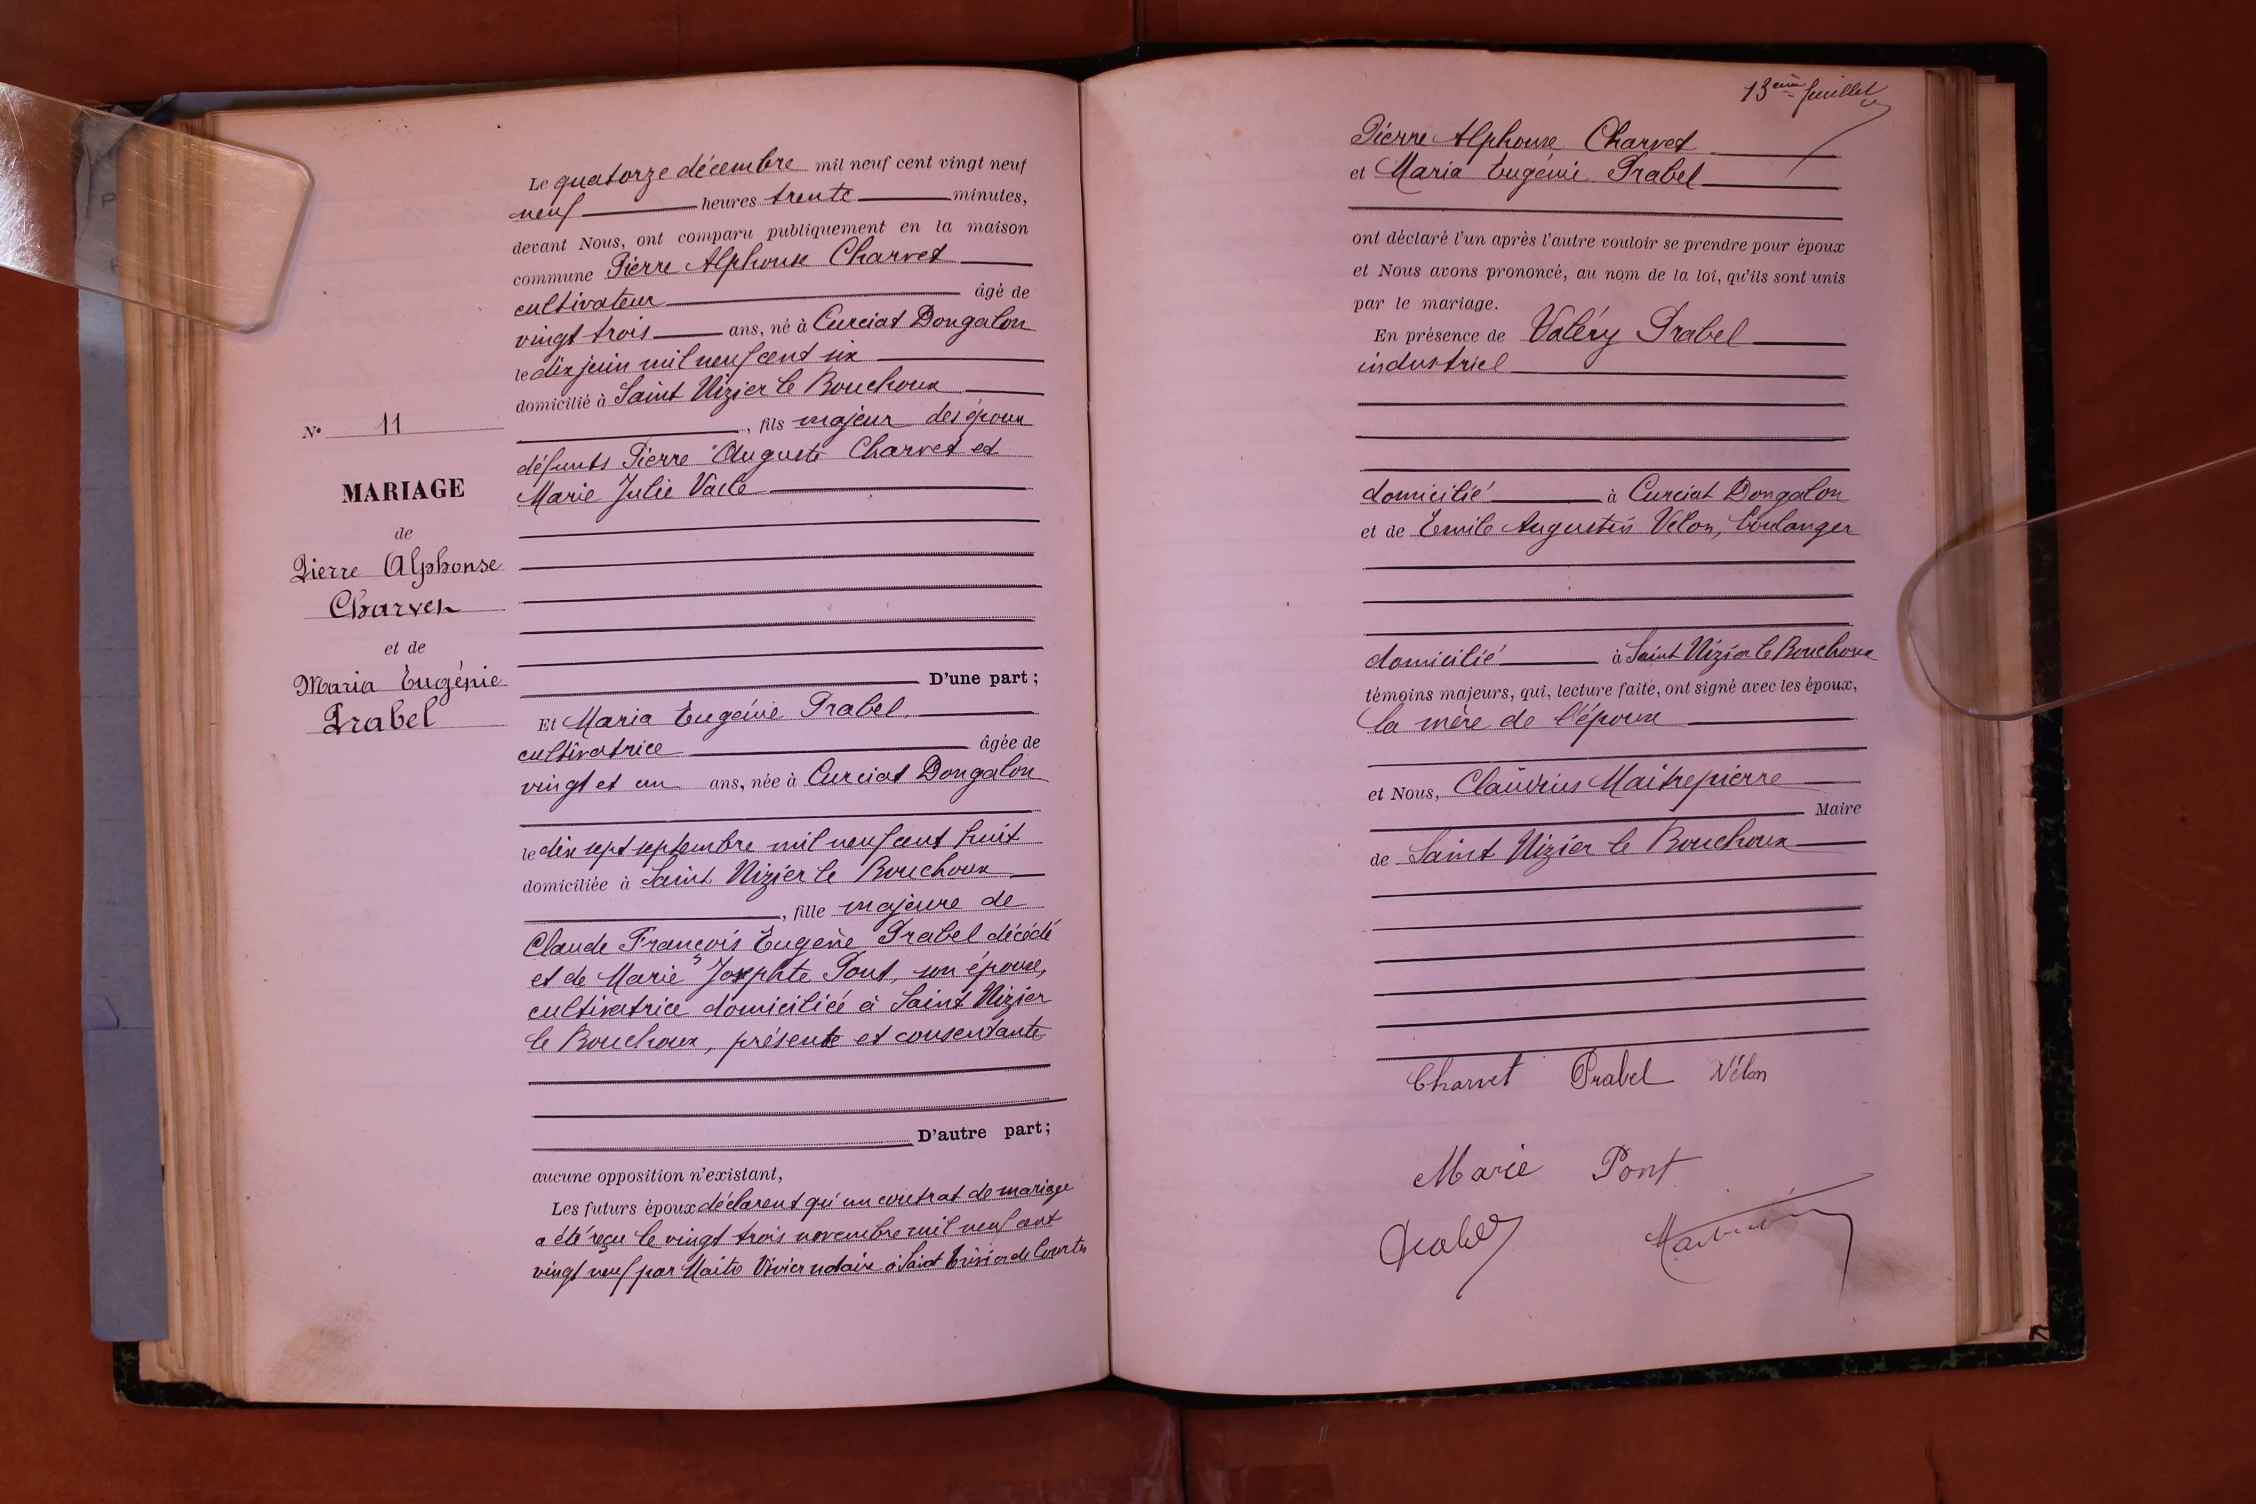 N° 11
MARIAGE
de
Pierre Alphonse
Charvet
et de
Maria Eugénie
Prabel
Le quatorze décembre mil neuf cent vingt neuf
neuf heures trente minutes,
devant Nous, ont comparu publiquement en la maison
commune Pierre Alphonse Charvet
cultivateur âgé de
vingt trois ans, né à Curciat Dongalon
le dix juin mil neuf cent six
domicilié à Saint Nizier le Bouchoux
, fils majeur des époux
défunts Pierre Auguste Charvet et
Marie Julie
D'une part ;
Et Maria Eugénie Prabel,
cultivatrice âgée de
vingt et un ans, née à Curciat Dongalon
le dix sept septembre mil neuf cent huit
domiciliée à Saint Nizier le Bouchoux
, fille majeure de
Claude François Eugène Prabel décédé
et de Marie Josephte Pont, son épouse,
cultivatrice domiciliée à Saint Nizier
le Bouchoux, présente et consentante
D'autre part ;
aucune opposition n'existant,
Les futurs époux déclarent qu'un contrat de mariage
a été reçu le vingt trois novembre mil neuf cent
vingt neuf par Maître Vivier notaire à Saint Trivier de Courtes
13ème feuillet
Pierre Alphonse Charvet
et Maria Eugénie Prabel
ont déclaré l'un après l'autre vouloir se prendre pour époux
et Nous avons prononcé, au nom de la loi, qu'ils sont unis
par le mariage.
En présence de Valéry Prabel
industriel
domicilié à Curciat Dongalon
et de Emile Augustin Velon, boulanger
domicilié à Saint Nizier le Bouchoux
témoins majeurs, qui, lecture faite, ont signé avec les époux,
la mère de l'épouse
et Nous, Claudius Maitrepierre
Maire
de Saint Nizier le Bouchoux
Charvet Prabel Vélon
Marie Pont
Prabel